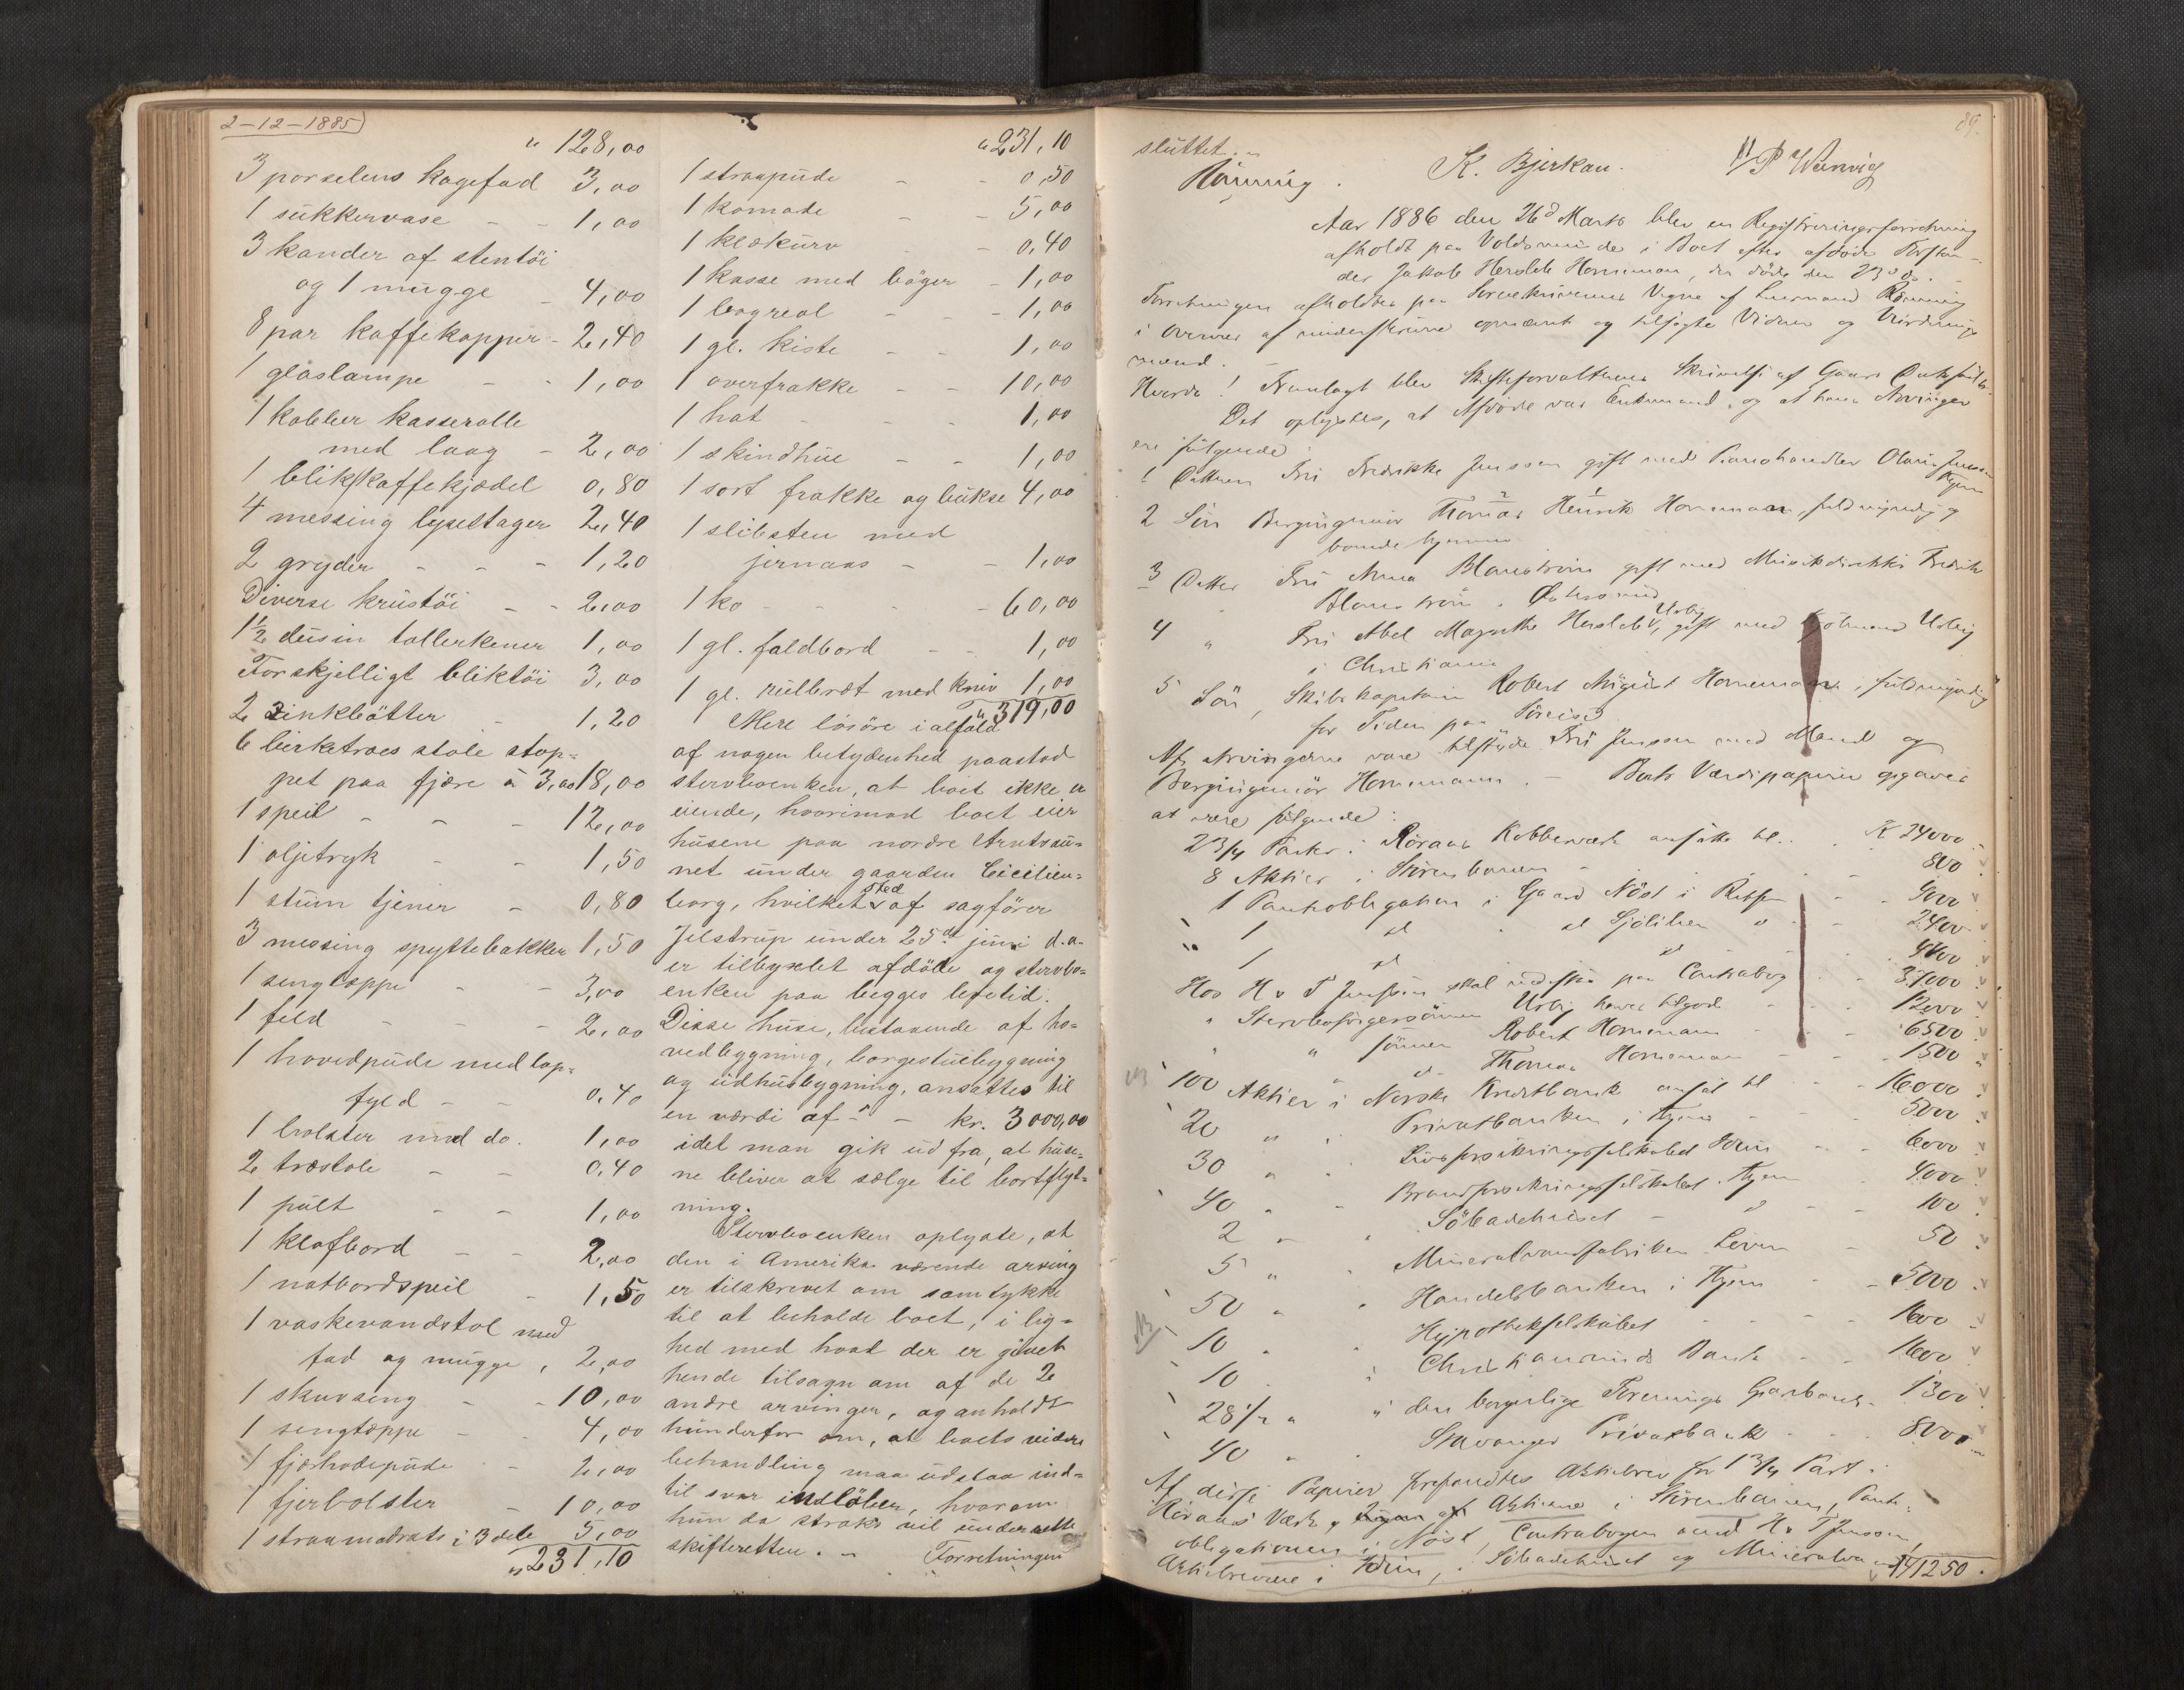 2-12-1885
" 128,00
3 porselens kagefad 3,00
1 sukkervase - - 1,00
3 kander af stentöi
og 1 mugge - 4,00
8 par kaffekopper - 2,40
1 glaslampe - - 1,00
1 kobber kasserolle
med laag - 2,00
1 blikkaffekjædel 0,80
4 messing lysestager 2,40
2 gryder - - - 1,20
Diverse krustöi - - 2,00
1½ dusin tallerkener 1,00
Forskjelligt bliktöi 3,00
2 zinkbötter - 1,20
6 birketræs stole stop=
pet paa fjære à 3,00 18,00
1 speil - - - 12,00
1 oljetryk - - 1,50
1 stum tjener - 0,80
3 messing spyttebakker 1,50
1 sengtæppe - - 3,00
1 feld - - - 2,00
1 hovedpude med lap=
fyld - - 0,40
1 bolster med do. 1,00
2 træstole - - 0,40
1 pult - - 1,00
1 klafbord - - 2,00
1 natbordspeil - 1,50
1 vaskevandstol med
fad og mugge, 2,00
1 skuvseng - - 10,00
1 sengtæppe - - 4,00
1 fjærhodepude - 2,00
1 fjerbolster - 10,00
1 straamadrats i 3 dele 5,00
" 231,10
" 231,10
1 straapude - - 0,50
1 komode - - 5,00
1 klækurv - 0,40
1 kasse med böger - 1,00
1 bogreol - - - 1,00
1 gl. kiste - - 1,00
1 overfrakke - - 10,00
1 hat - - - 1,00
1 skindhue - - 1,00
1 sort frakke og bukse 4,00
1 slibsten med
jernaas - - 1,00
1 ko - - - - 60,00
1 gl. foldbord - - 1,00
1 gl. rullebræt med kniv 1,00
" 319,00
Mere lösöre i alfald
af nogen betydenhed paastod
stervboenken, at boet ikke er
eiende, hvorimod boet eier
husene paa nordre Arntssu=
net under gaarden Cicilien=
borg, hvilket sted af sagförer
Jelstrup under 25de juni d.a.
er tilbyxlet afdöde og stervbo=
enken paa begges lefetid.
Disse huse, bestaaende af ho=
vedbygning, borgestuebygning
og udhusbygning, ansættes til
en værdi af - - kr. 3000,00
idet man gik ud fra, at huse=
ne bliver at sælge til bortflyt=
ning.
Stervboenken oplyste, at
den i Amerika værende arving
er tilskrevet om samtykke
til at beholde boet, i lig=
hed med hvad der er givet
hende tilsagn om af de 2
andre arvinger, og anholdt
hun derfor om, at boets videre
behandling maa udstaa ind=
til svar indlöber, hvorom
hun da straks vil underrette
skifteretten. - Forretningen
89.
sluttet. -
Rönning. K. Bjerkan. P Wanvig
Aar 1886 den 26d Marts blev en Registreringsforretning
afholdt paa Voldsminde i Boet efter afdöde
Jakob Hersleb Hornemann, der döde den 23d ds.
Forretningen afholdtes paa Sorenskriverens Vegne af Rönning
i Overvær af underskrevne opnævnte og tilsagte Vidner og Vurderings
mænd. -
Fremlagt blev Skifteforvalterens Skrivelse af
Det oplystes, at Afdöde var Enkemand, og at hans Arvinger
ere fölgende:
1 Datteren Fru Fredrikke Jenssen gift med
2 Sön Bergingeniör Thomas Henrik Hornemann, fuldmyndig og
boende hjemme
3 Datter Fru Anna Blomström gift med Musikdirektör Fredrik
Blomström, Östersund
4 " Fru Abel Margrethe Hersleb Urbig, gift med Urbig
i Christiania
5 Sön, Skibskaptein Robert August Hornemann, fuldmyndig
for Tiden paa Söreise
Af Arvingerne vare tilstede Fru Jenssen med Mand og
Bergingeniör Hornemann. - Boets Værdipapirer opgaves
at være fölgende:
2 3/4 Parter i Röraas Kobberværk ansatte til. K 24000
8 Aktier i Störenbanen - - 800
1 Pantobligation i Gaard Nöst i
" 1 " " 2400
" 1 " 4400
Hos H & T Jenssen skal indestaa paa Contrabog - 37000
" Svigersönnen Urbig haves tilgode - 12000
" " sönnen Robert Hornemann - - 6500
" " Thomas Hornemann - - 1500
100 Aktier i Norske Kreditbank ansat til - - 16000
20 " " Privatbanken i Thjem - - 5000
30 " " Livsforsikringsselskabet Idun - - 6000
40 " " Brandforsikringsselskabet Thjem - 4000
2 " " Söbadehuset - " - - 100
5 " " Mineralvandfabriken - 50
50 " " Handelsbanken i Thjem - 5000
10 " " Hypothekselskabet - - - 1000
10 " " Christianssunds Bank - - 1600
28 1/2 " " den borgerlige Forenings - 1300
40 " " Stavanger Privatbank - - 8000
Af disse Papirer forefandtes Aktiebrev for 1 3/4 Part i
Röraas Værk, Aktierne i Störenbanen, Pant=
obligationen i Nöst, Contrabogen med H & T Jenssen,
Aktiebrevene i Idun, Söbadehuset og Mineralva 141250.